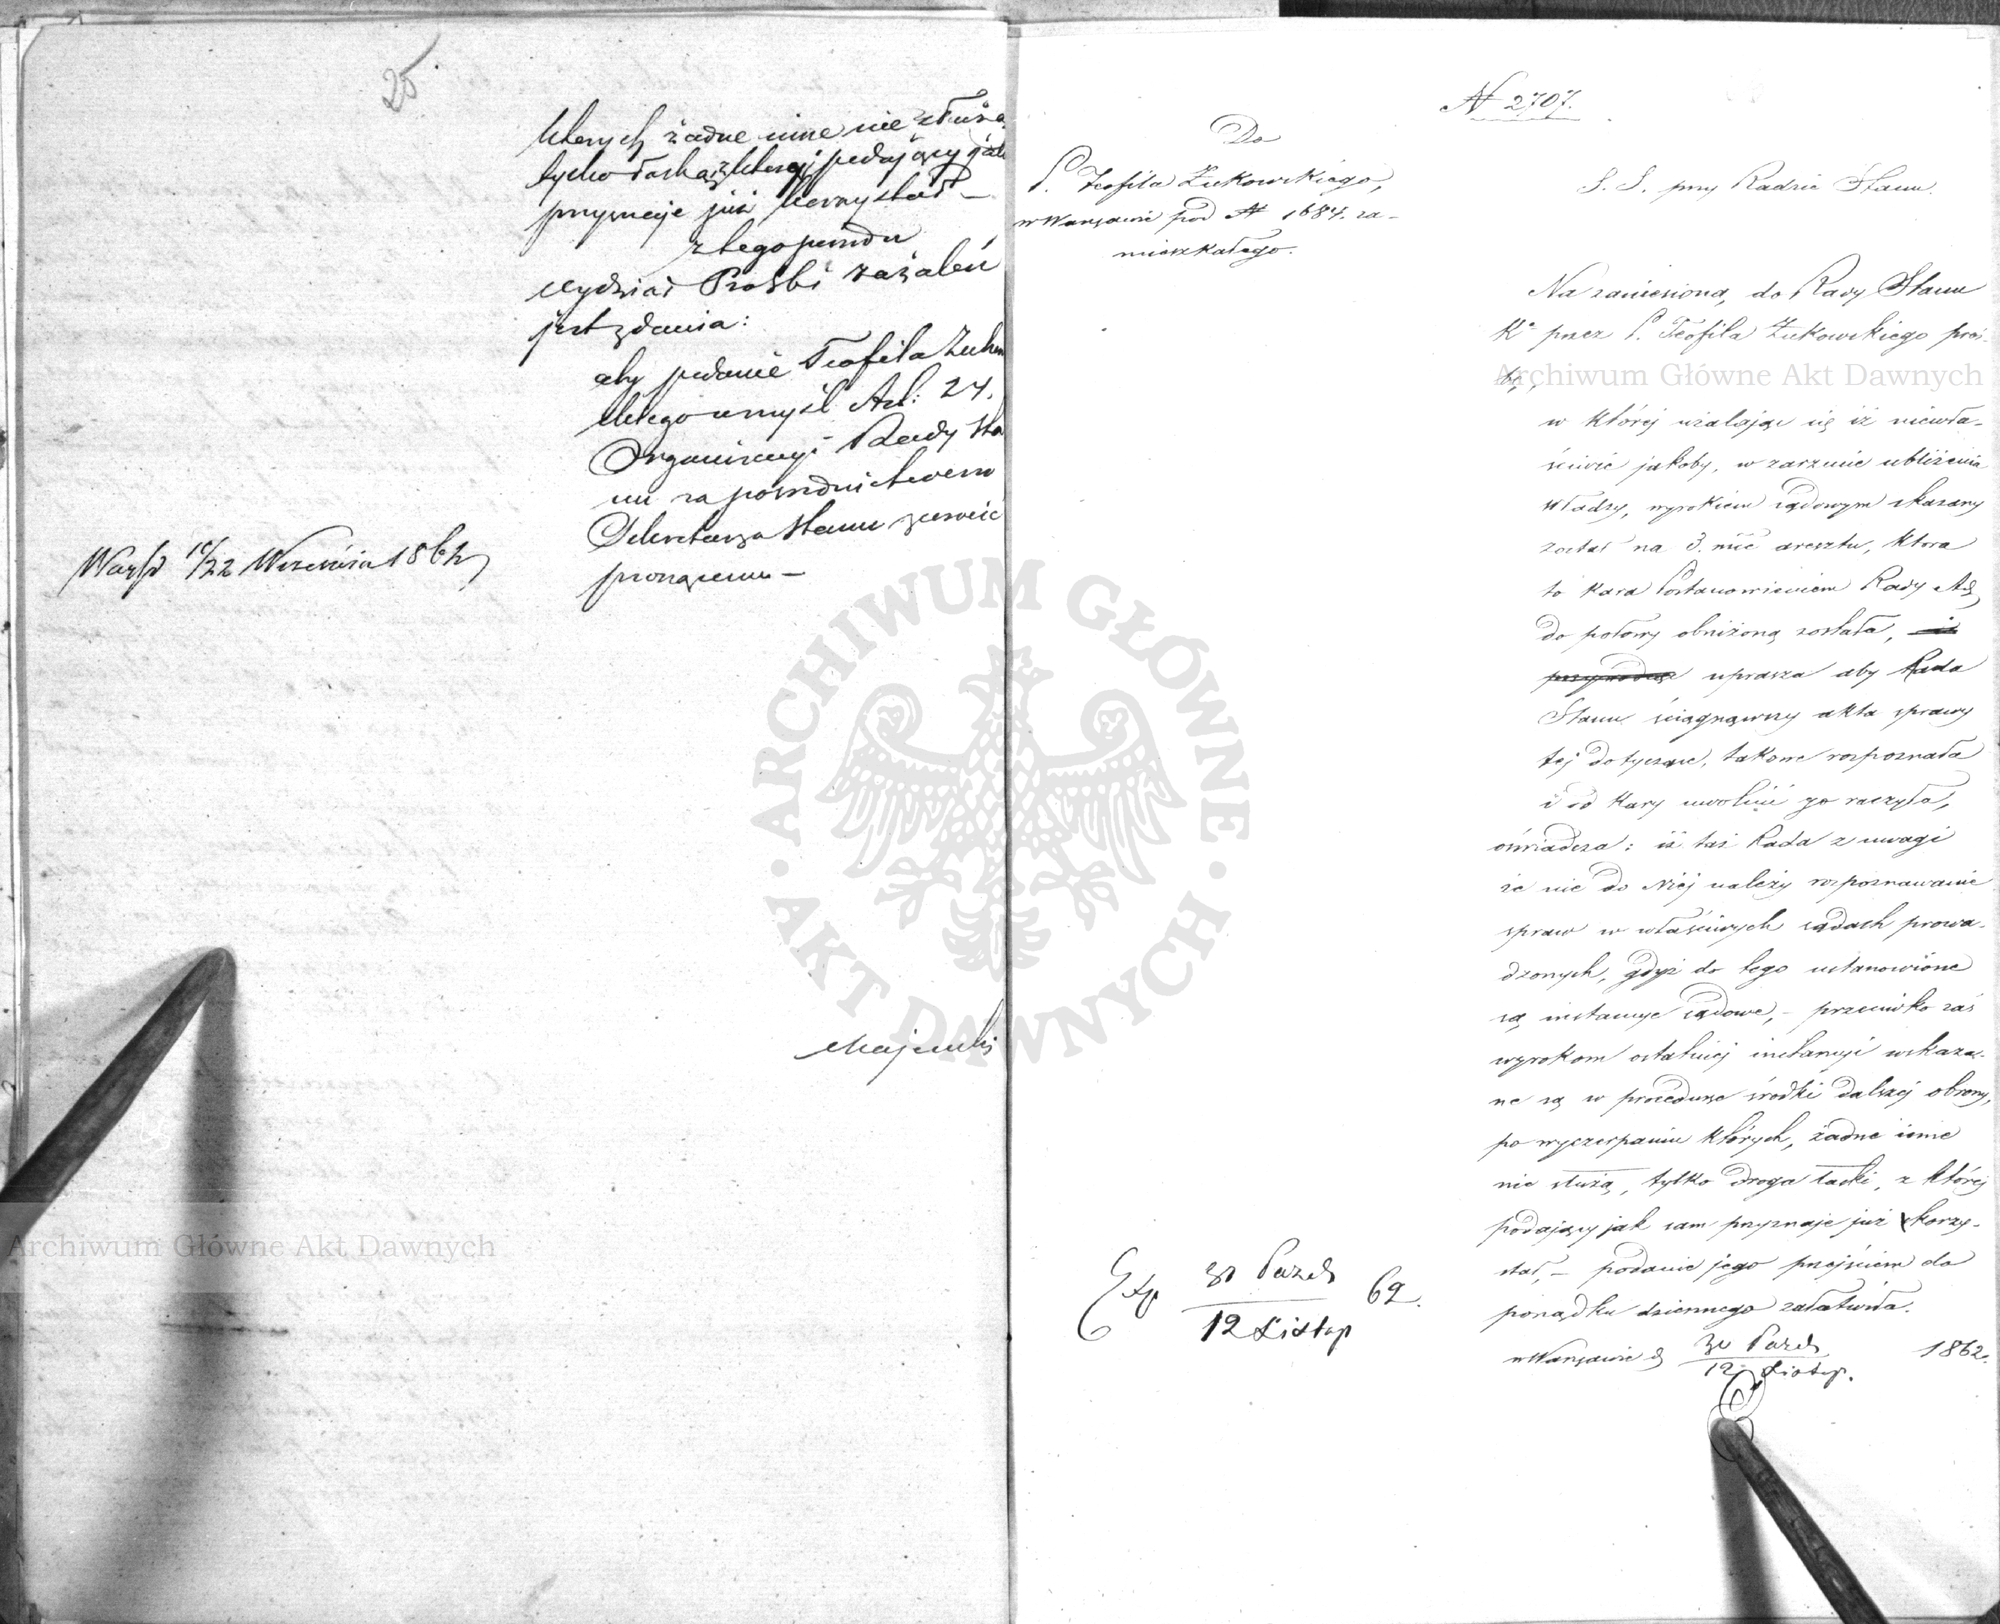 25
których żadne inne nie służą
tylko łaska, z której podający jak
przyznaje już korzystał –
z tego powodu
Wydział Próśb i zażaleń
jest zdania:
aby podanie Teofila Żukow
skiego w myśl Art: 24.
Organizacyi Rady Sta
nu za pośrednictwem
Sekretarza Stanu zwrócić
proszącemu –
Warsz 10/22 Września 1862
Majewski
N 2707.
Do
P. Teofila Żukowskiego,
w Warszawie pod N 1684. za-
mieszkałego.
S. S. przy Radzie Stanu.
Na zaniesioną do Rady Stanu
Kr przez P. Teofila Żukowskiego proś-
bę,
w której użalając się iż niewła-
ściwie jakoby, w zarzucie ubliżenia
władzy, wyrokiem sądowym skazany
został na 3. mce aresztu, która
to kara Postanowieniem Rady Ad
do połowy obniżoną została,
uprasza aby Rada
Stanu ściągnąwszy akta sprawy
tej dotyczące, takowe rozpoznała
i od kary uwolnić go raczyła,
oświadcza: iż taż Rada z uwagi
że nie do Niej należy rozpoznawanie
spraw w właściwych sądach prowa-
dzonych, gdyż do tego ustanowione
są instancye sądowe, – przeciwko zaś
wyrokom ostatniej instancyi wskaza-
ne są w procedurze środki dalszej obrony,
po wyczerpaniu których, żadne inne
nie służą, tylko droga łaski, z której
podający jak sam przyznaje już korzy-
stał, – podanie jego przejściem do
porządku dziennego załatwiła.
w Warszawie d 30 Paźd 1862.
12 Listop.
Exp 30 Paźd 62.
12 Listop
Archiwum Główne Akt Dawnych
Archiwum Główne Akt Dawnych
ARCHIWUM GŁÓWNE
AKT DAWNYCH